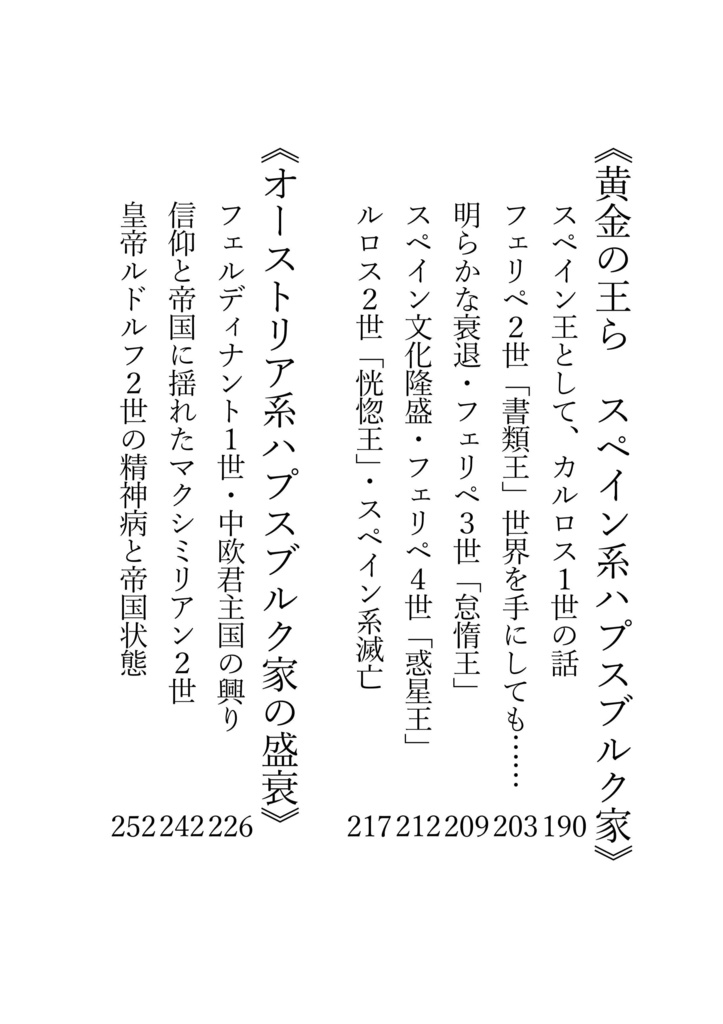 《黄金の王ら　スペイン系ハプスブルク家》
スペイン王として、カルロス１世の話 190
フェリペ２世「書類王」世界を手にしても…… 203
明らかな衰退・フェリペ３世「怠惰王」 209
スペイン文化隆盛・フェリペ４世「惑星王」 212
ルロス２世「恍惚王」・スペイン系滅亡 217
《オーストリア系ハプスブルク家の盛衰》
フェルディナント１世・中欧君主国の興り 226
信仰と帝国に揺れたマクシミリアン２世 242
皇帝ルドルフ２世の精神病と帝国状態 252